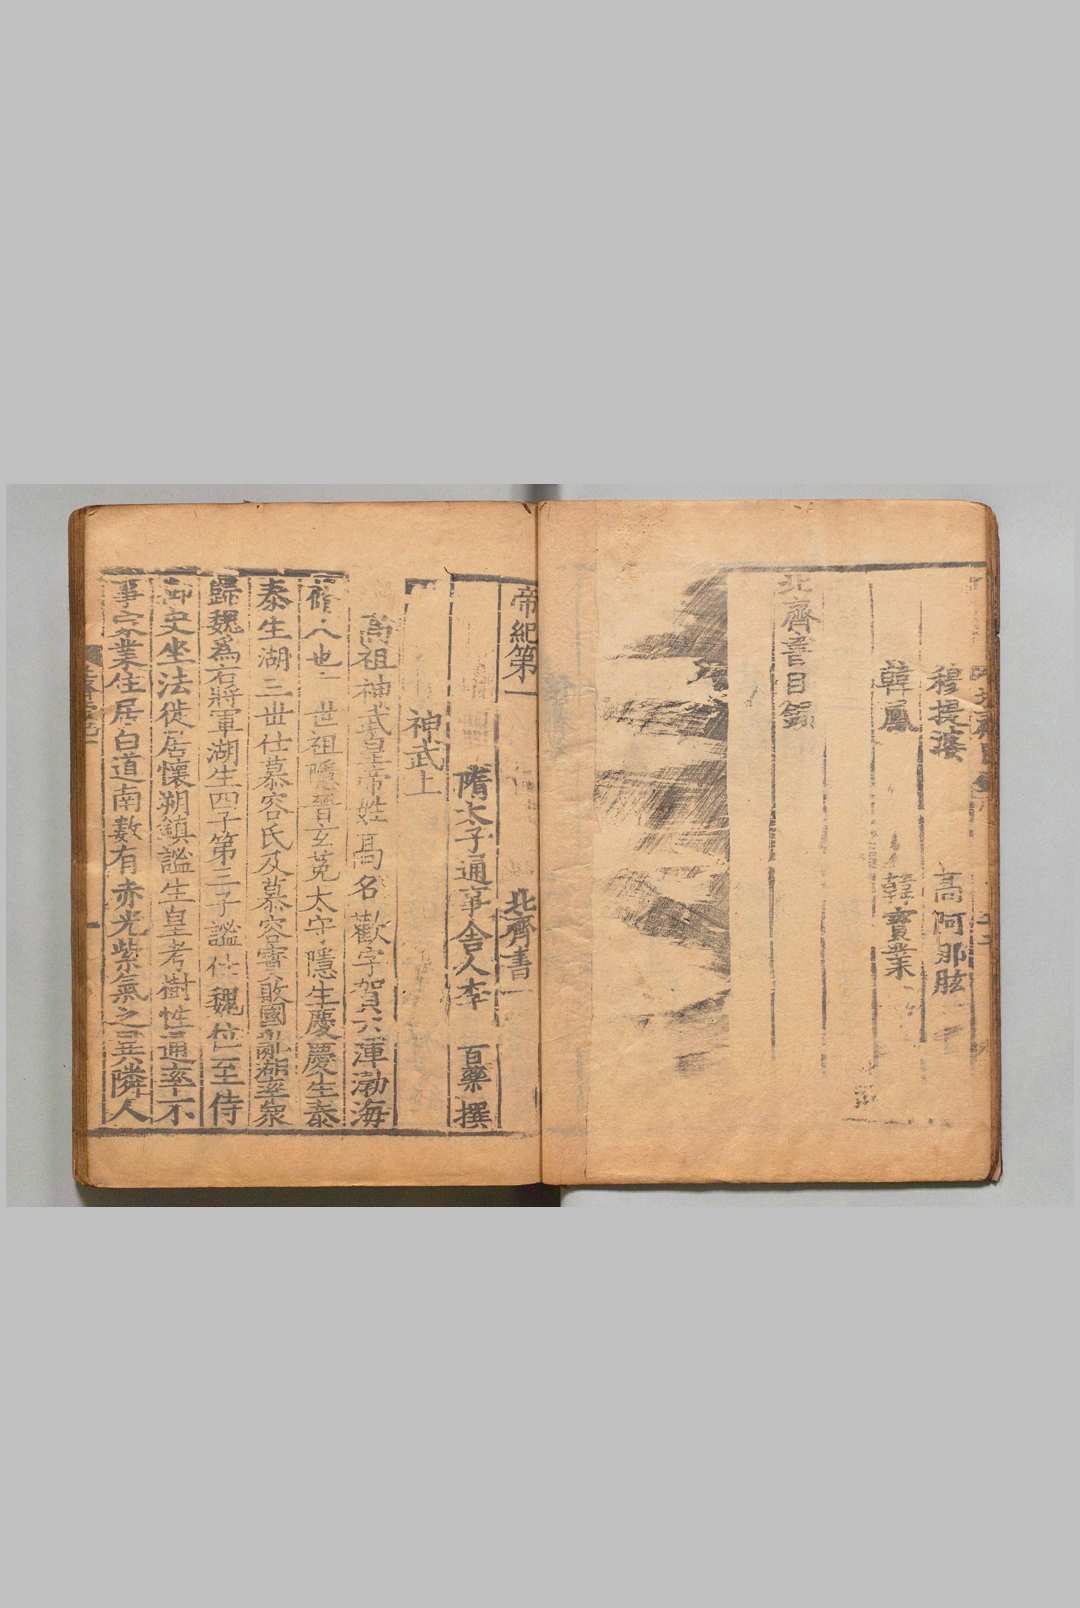 穆提婆 高阿那肱
韓鳳 韓寶業
北齊書目錄
帝紀第一 北齊書一
隋太子通事舍人李 百藥 撰
神武上
高祖神武皇帝姓高名歡字賀六渾渤海
蓨人也 世祖隱晉玄菟太守隱生慶慶生泰
泰生湖三世仕慕容氏及慕容寶敗國亂湖率眾
歸魏爲右將軍湖生四子第三子謐仕魏位至侍
御史坐法徙居懷朔鎮謐生皇考樹性通率不
事家業住居白道南數有赤光紫氣之異隣人